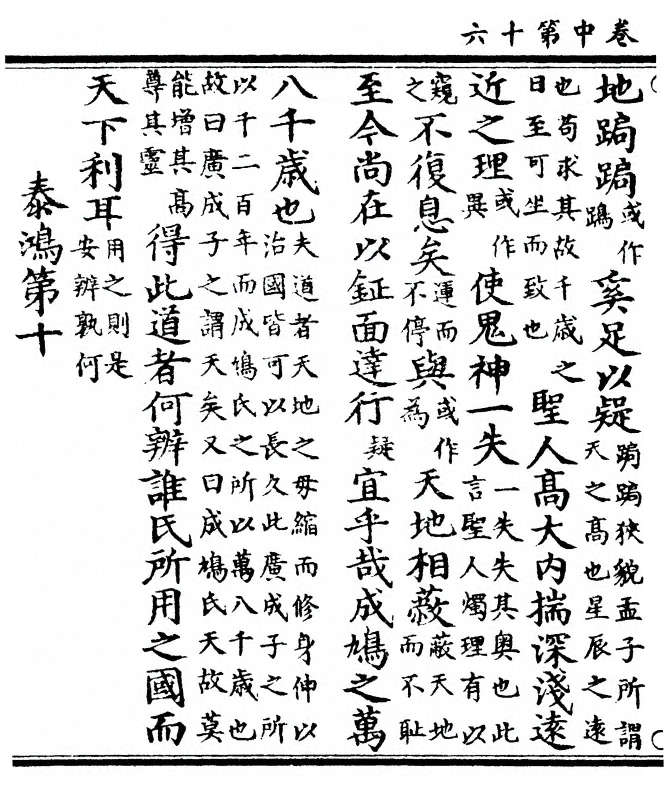 卷中第十六
地跼跼或作奚足以疑跼跼狹貌孟子所謂天之高也星辰之遠
也苟求其故千歲之日至可坐而致也聖人高大内揣深淺遠
近之理或作異使鬼神一失一失失其奥也此言聖人燭理有以
窺之不復息矣運而不停與或作為天地相蔽蔽天地而不耻
至今尚在以鉦面達行疑宜乎哉成鳩之萬
八千歲也夫道者天地之毋縮而修身伸以治國皆可以長久此廣成子之所
以千二百年而成鳩氏之所以萬八千歲也故曰廣成子之謂天矣又曰成鳩氏天故莫
能增其高尊其靈得此道者何辨誰氏所用之國而
天下利耳用之則是安辨孰何
泰鴻第十